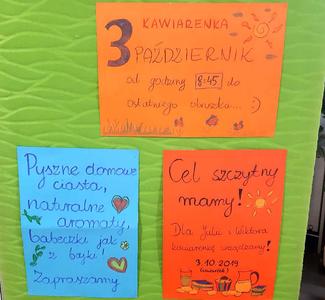 KAWIARENKA
3 PAŹDZIERNIK
od godziny 8:45 do
ostatniego okruszka... :)
Pyszne domowe
ciasta,
naturalne
aromaty,
babeczki jak
z bajki!
Zapraszamy
Cel szczytny
mamy!
Dla Julii i Wiktora
kawiarenkę urządzamy!
3.10.2019
(czwartek)